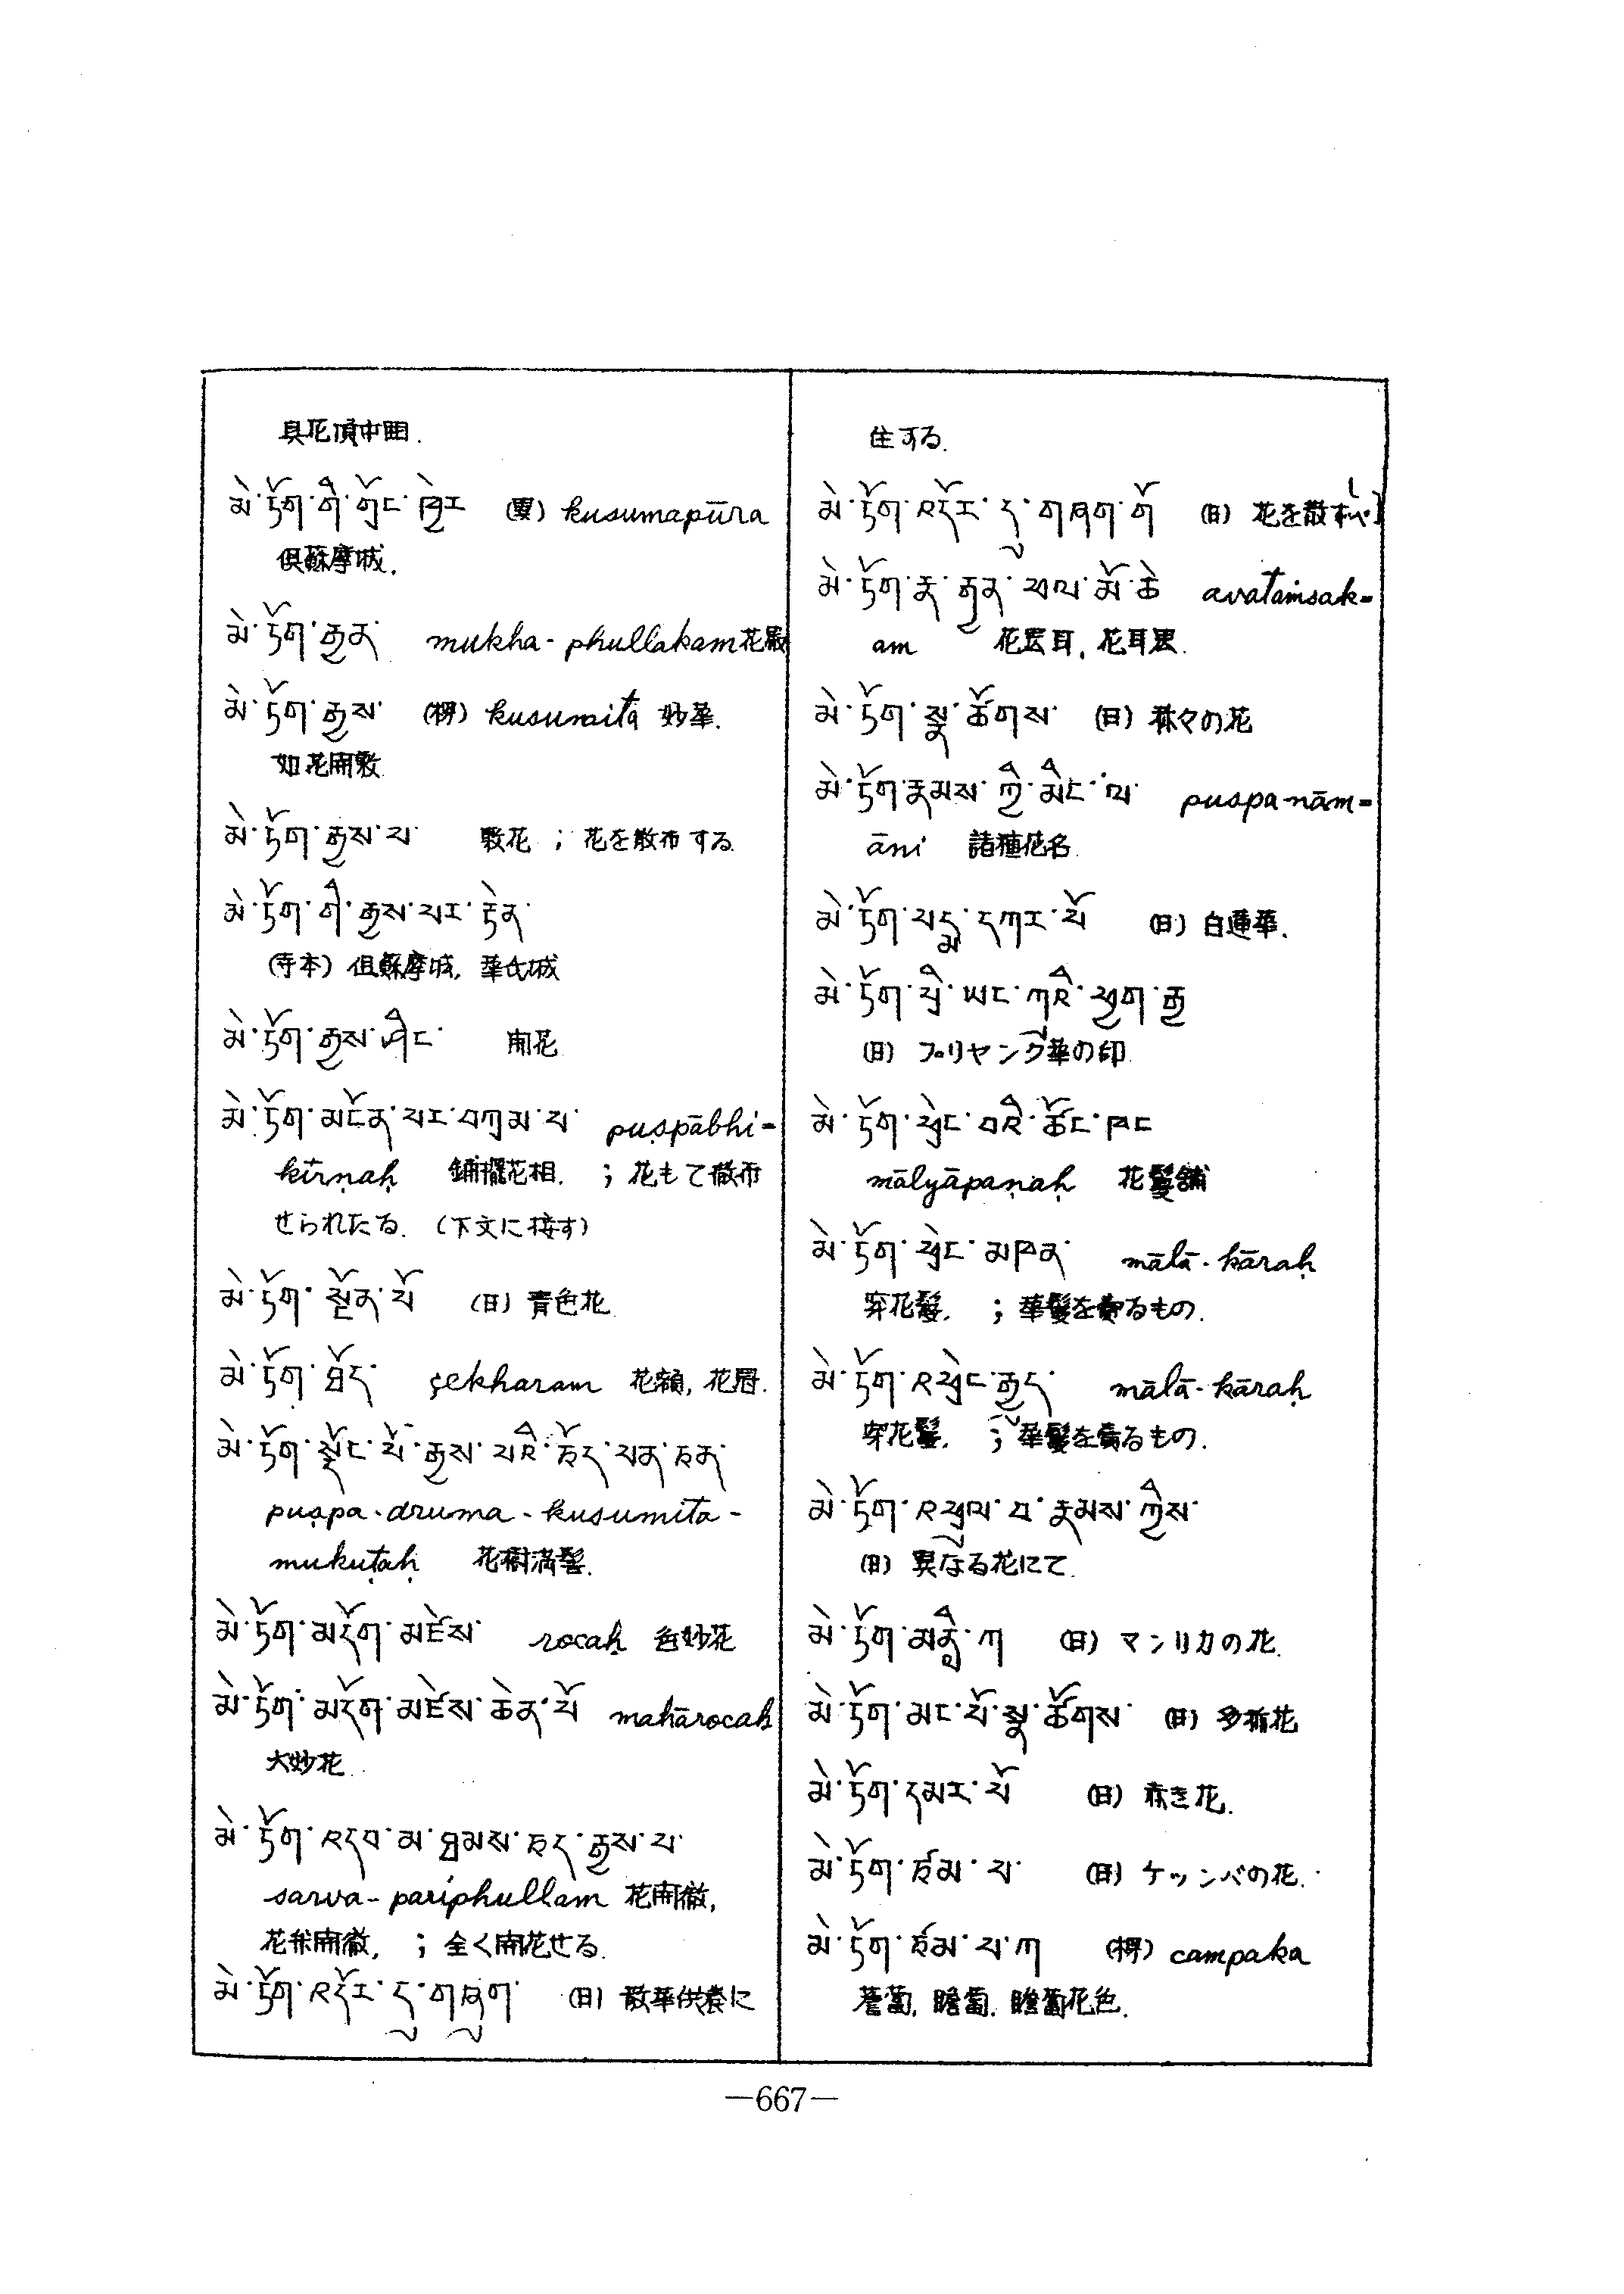 具花頂中囲.
མེ་ཏོག་གི་གྲོང་ཁྱེར (翻) kusumapūra
倶蘇摩城.
མེ་ཏོག་རྒྱན་ mukha-phullakam 花嚴
མེ་ཏོག་རྒྱས་ (梵) kusumita 妙華.
如花開敷
མེ་ཏོག་རྒྱས་པ་ 敷花 ; 花を散布する
མེ་ཏོག་གི་རྒྱས་པར་རྟེན་
(寺本) 倶蘇摩城, 華氏城
མེ་ཏོག་རྒྱས་ཤིང་ 開花
མེ་ཏོག་མངོན་པར་བཀྲམ་པ་ puṣpābhi-
kīrṇaḥ 鋪擺花相. ; 花もて散布
せられたる. (下文に接す)
མེ་ཏོག་སྔོན་པོ (日) 青色花
མེ་ཏོག་ཐོད་ śekharam 花額, 花冠.
མེ་ཏོག་སྡོང་པོ་རྒྱས་པའི་ཅོད་པན་ཅན་
puṣpa-druma-kusumita-
mukuṭaḥ 花樹満髻.
མེ་ཏོག་མདོག་མཛེས་ rocaḥ 色妙花
མེ་ཏོག་མདོག་མཛེས་ཆེན་པོ mahārocaḥ
大妙花.
མེ་ཏོག་འདབ་མ་ཐམས་ཅད་རྒྱས་པ་
sarva-pariphullam 花開徹,
花弁開徹, ; 全く開花せる.
མེ་ཏོག་འདོར་དུ་གཞུག་ (日) 散華供養に
住する.
མེ་ཏོག་འདོར་དུ་གཞག་གོ (日) 花を散ずべし
མེ་ཏོག་རྣ་རྒྱན་ཕལ་མོ་ཆེ avataṁsak-
am 花云耳, 花耳墨.
མེ་ཏོག་སྣ་ཚོགས་ (日) 種々の花
མེ་ཏོག་རྣམས་ཀྱི་མིང་ལ་ puspa-nām-
āni 諸種花名
མེ་ཏོག་པདྨ་དཀར་པོ (日) 白蓮華.
མེ་ཏོག་པྲི་ཡང་ཀུའི་ཕྱག་རྒྱ
(日) プリヤング華の印
མེ་ཏོག་ཕྲེང་བའི་ཚོང་ཁང
mālyāpaṇaḥ 花鬘舗
མེ་ཏོག་ཕྲེང་མཁན་ mālā-kāraḥ
穿花鬘. ; 華鬘を賣るもの.
མེ་ཏོག་འཕྲེང་རྒྱུད་ mālā-kāraḥ
穿花鬘. ; 華鬘を賣るもの.
མེ་ཏོག་འཕྲུལ་བ་རྣམས་ཀྱིས་
(日) 異なる花にて.
མེ་ཏོག་མལླི་ཀ (日) マンリカの花.
མེ་ཏོག་མང་པོ་སྣ་ཚོགས་ (日) 多指花
མེ་ཏོག་དམར་པོ (日) 赤き花.
མེ་ཏོག་ཙམ་པ་ (日) ケッンパの花.
མེ་ཏོག་ཙམ་པ་ཀ (梵) campaka
薝蔔, 瞻蔔. 瞻蔔花色.
—667—